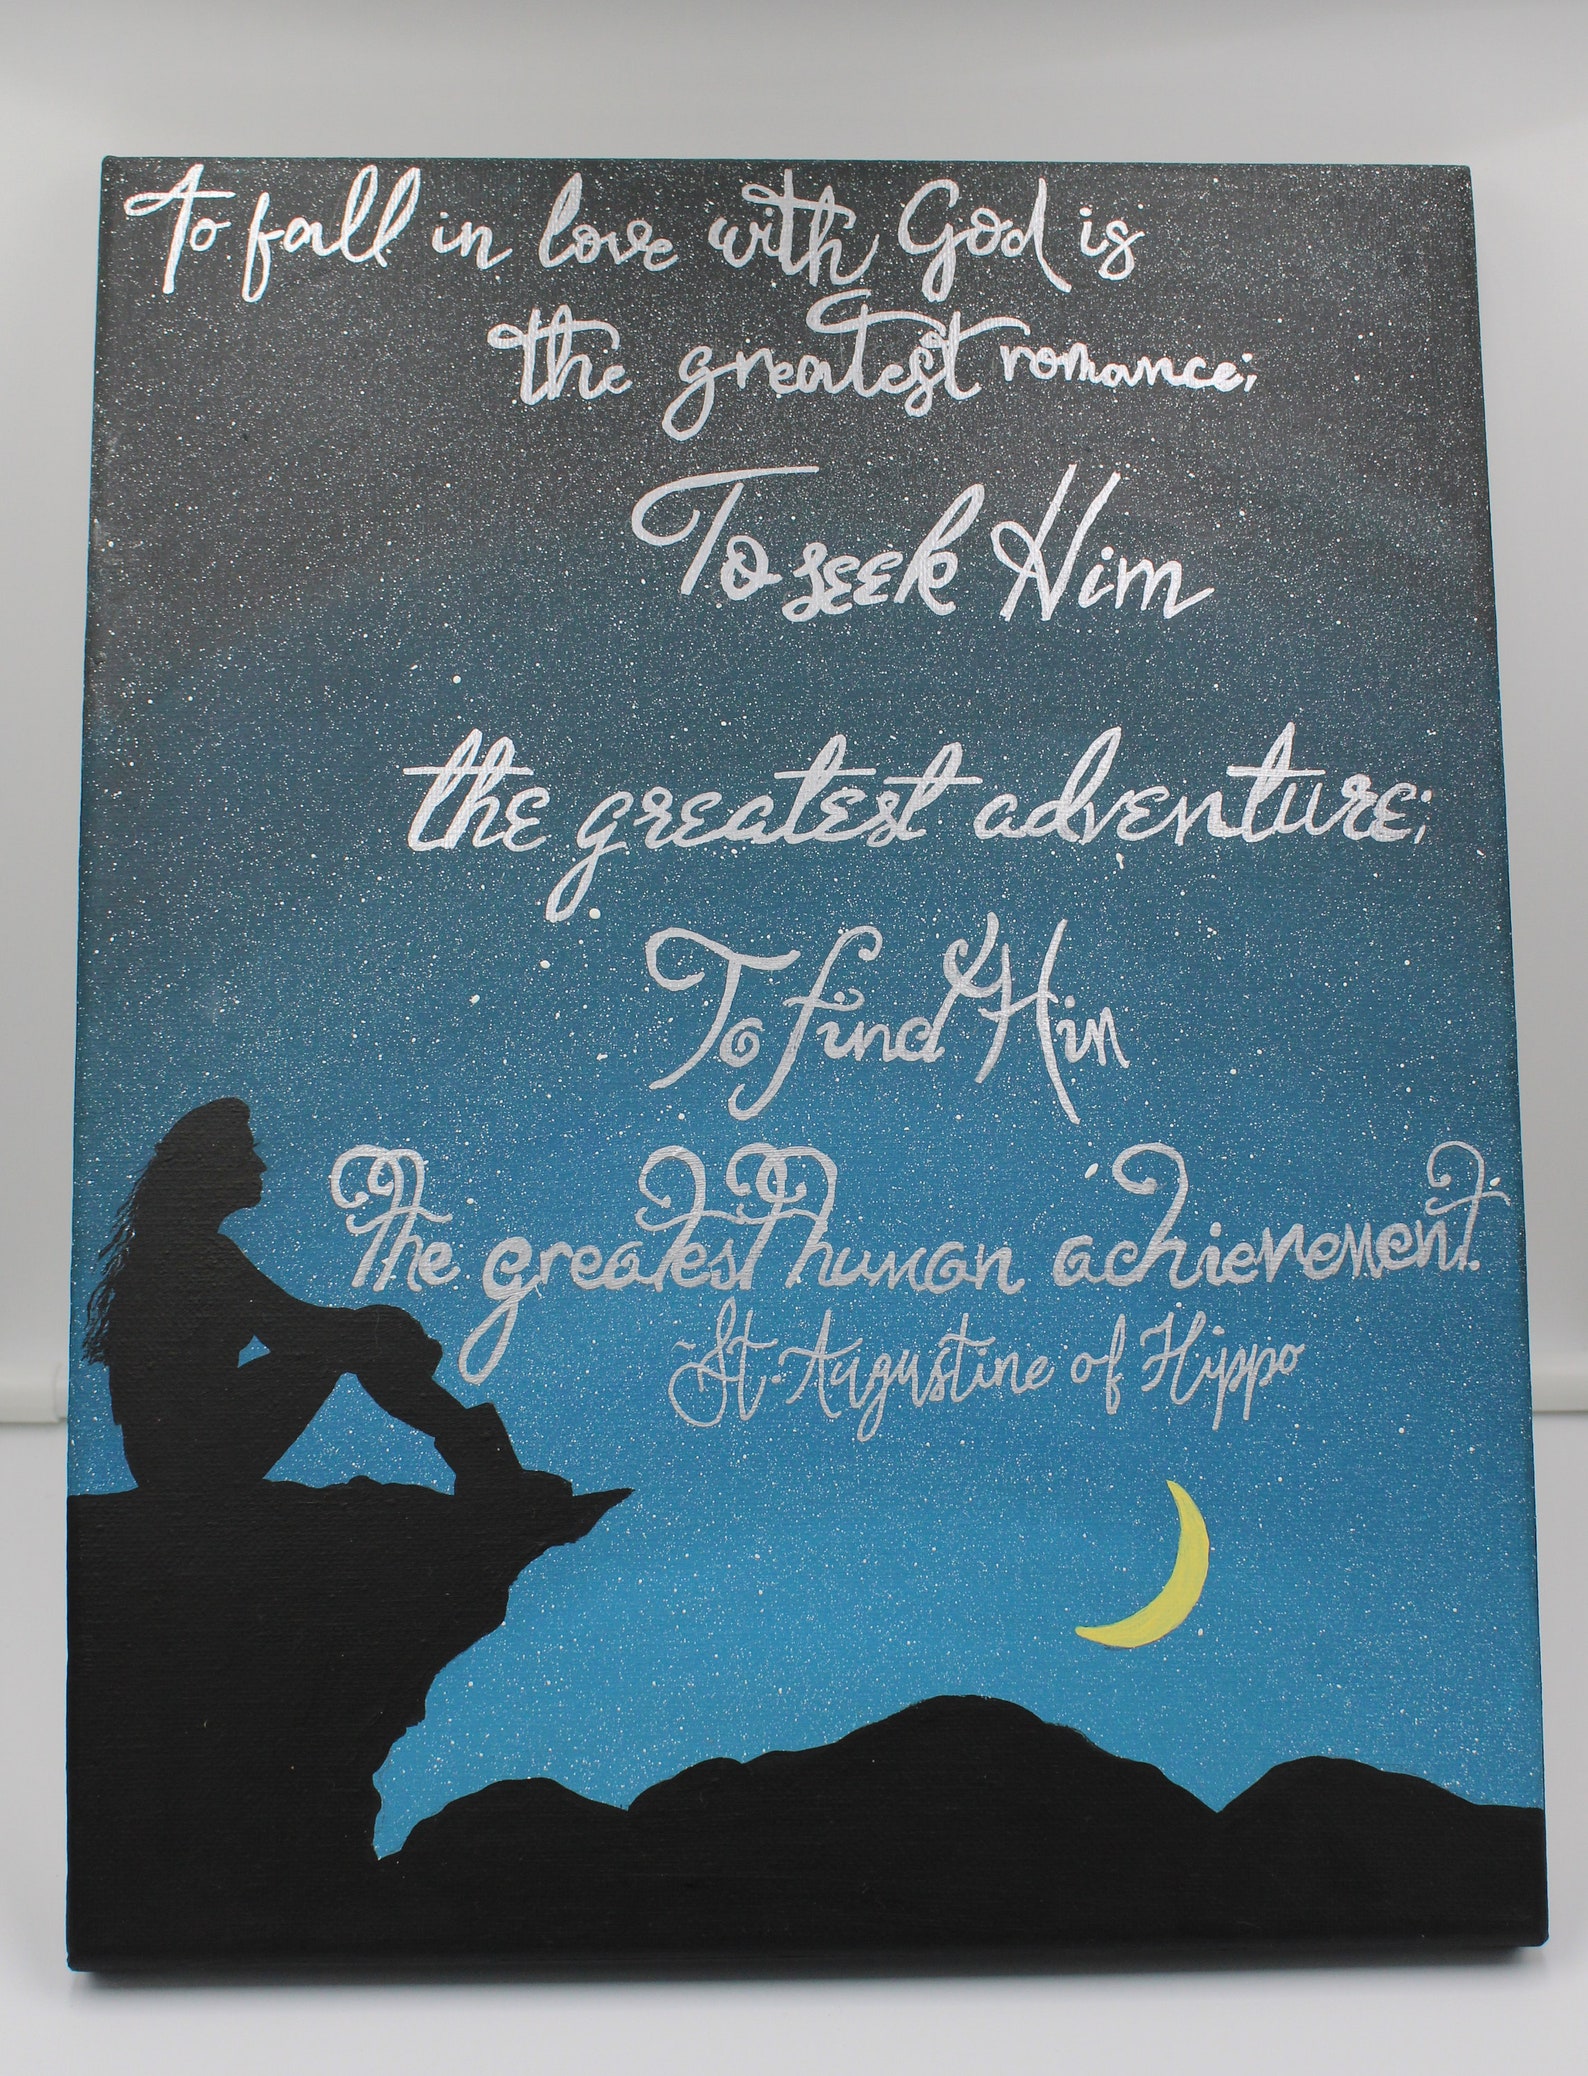 To fall in love with God is
the greatest romance;
To seek Him
the greatest adventure;
To find Him
The greatest human achievement.
~St. Augustine of Hippo